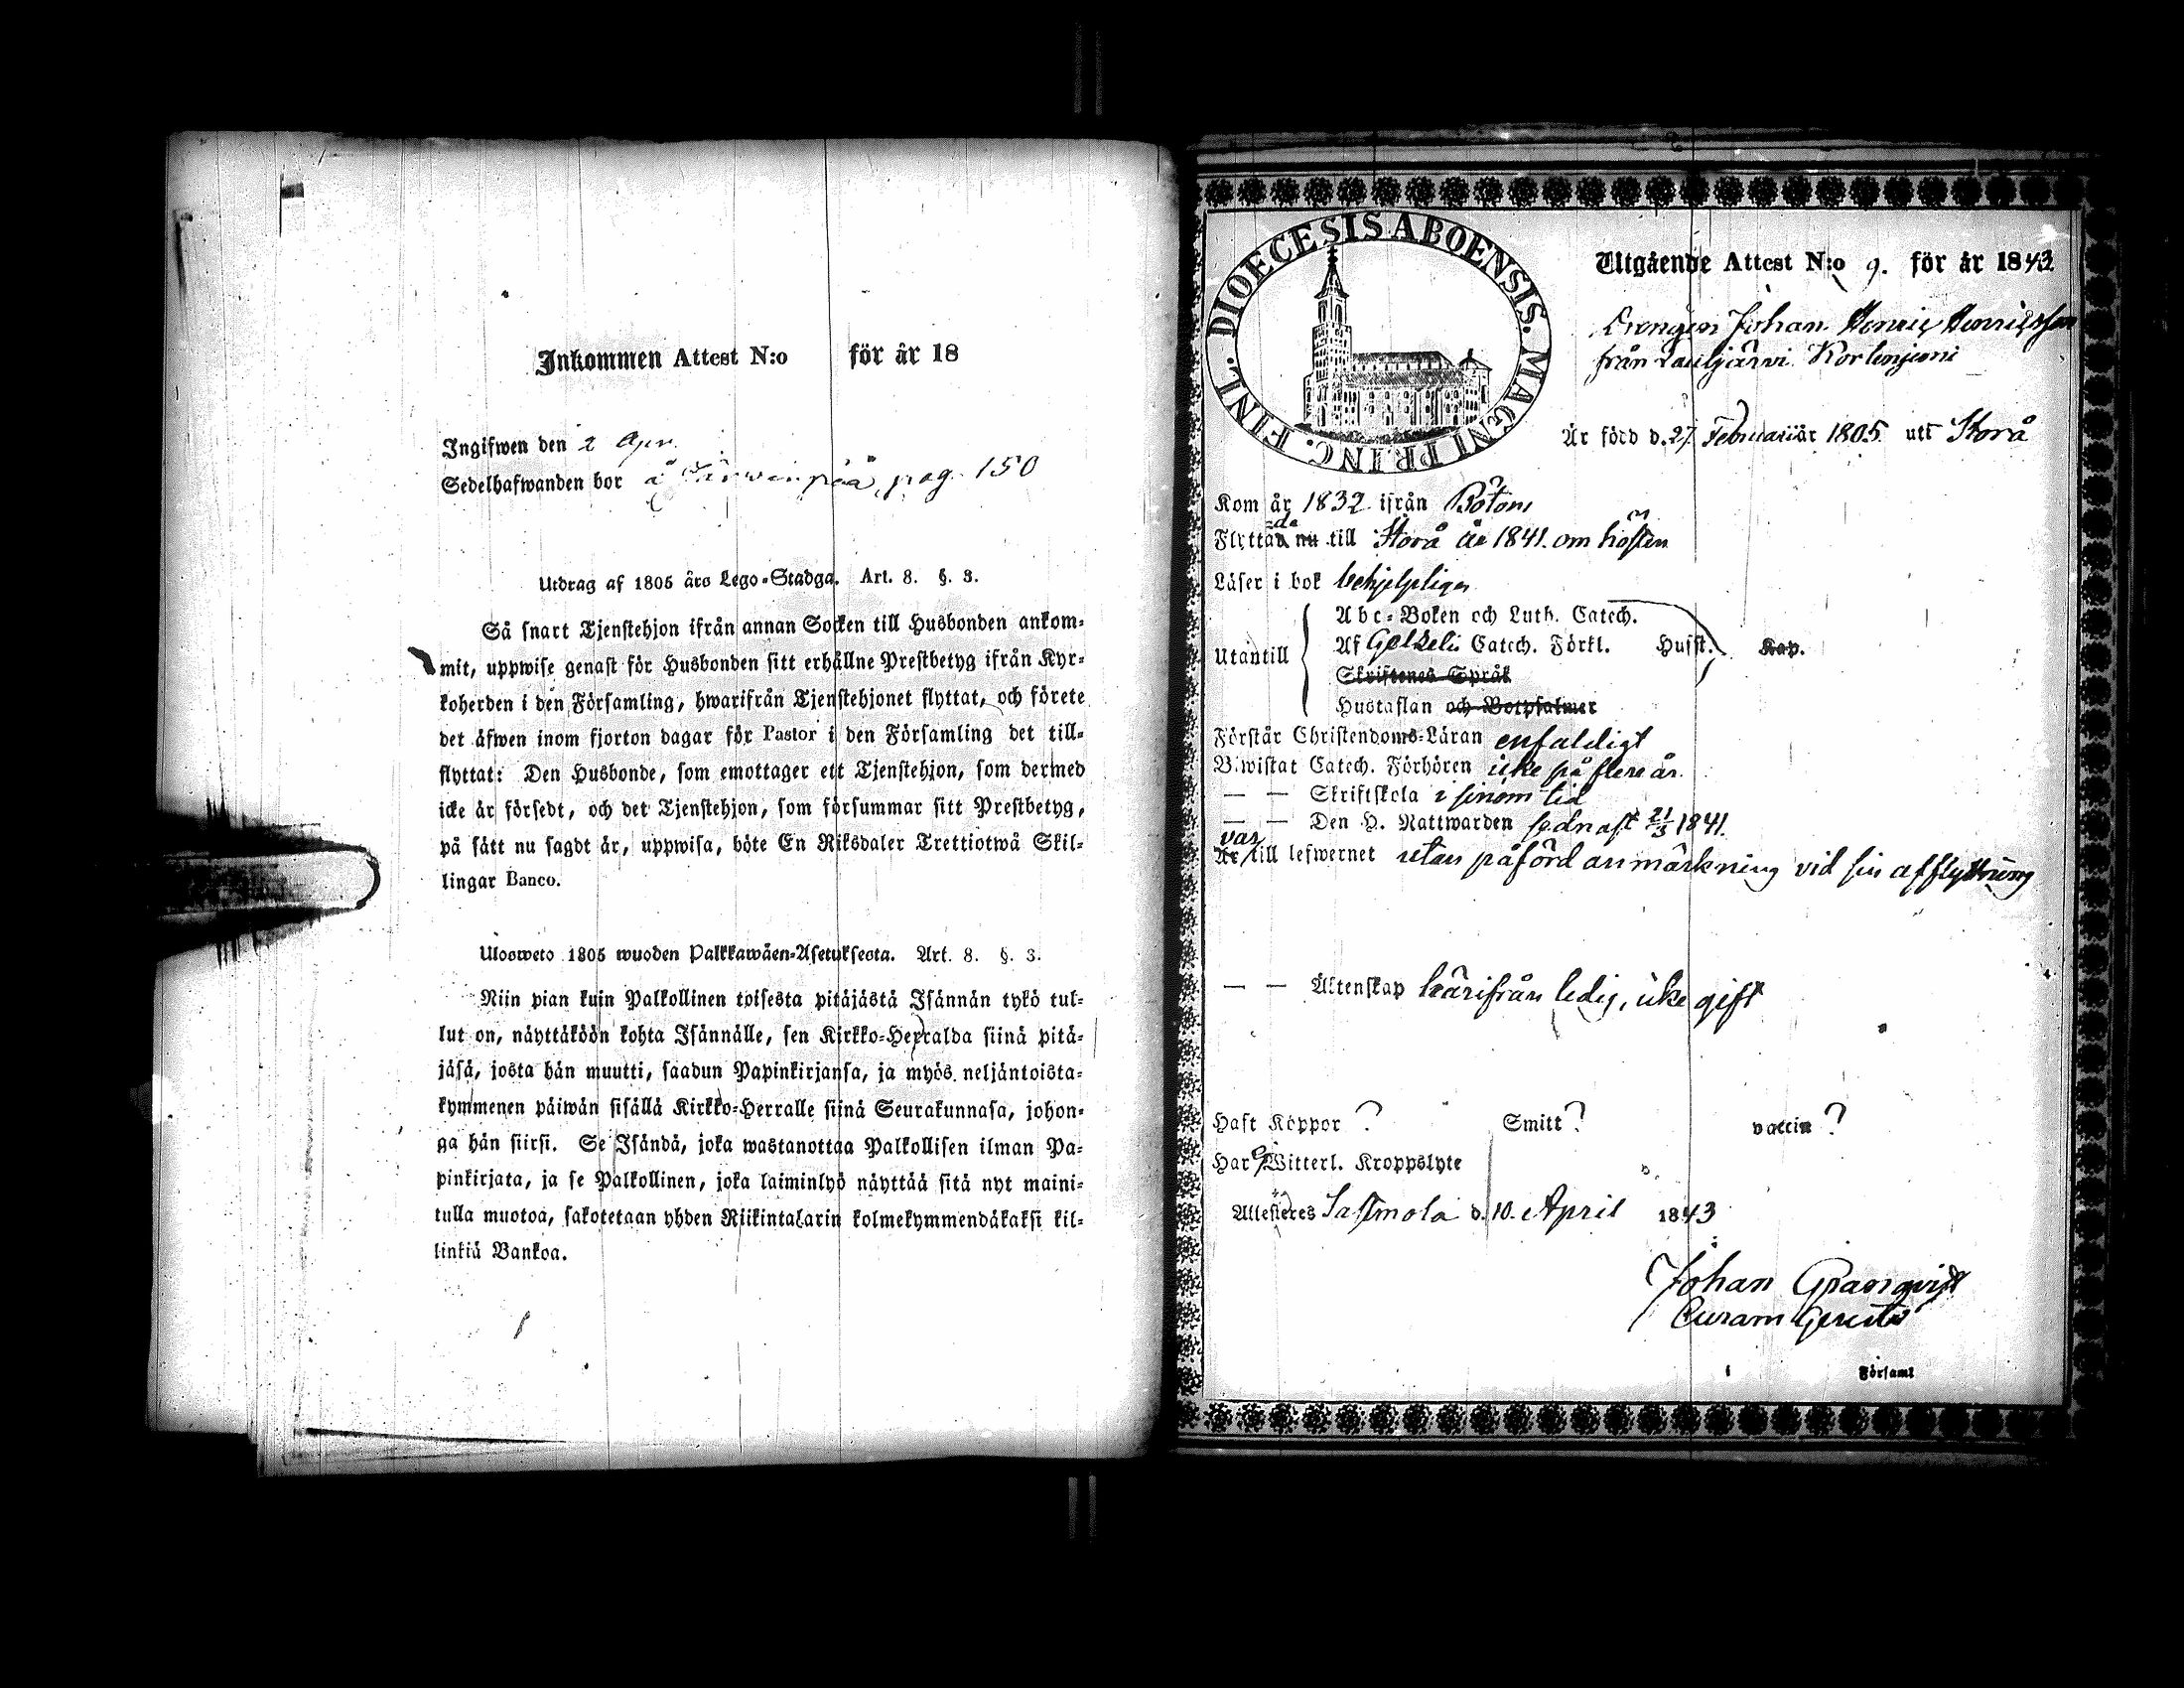 Inkommen Attest N:o för år 18
Ingifwen den 2 Apr.
Sedelhafwanden bor å pag. 150
Utdrag af 1805 års Lego-Stadga. Art. 8. §. 3.
Så snart Tjenstehjon ifrån annan Socken till Husbonden ankom-
mit, uppwise genast för Husbonden sitt erhållne Prestbetyg ifrån Kyr-
koherden i den Församling, hwarifrån Tjenstehjonet flyttat, och förete
det äfwen inom fjorton dagar för Pastor i den Församling det till-
flyttat: Den Husbonde, som emottager ett Tjenstehjon, som dermed
icke är försedt, och det Tjenstehjon, som försummar sitt Prestbetyg,
på sätt nu sagdt är, uppwisa, böte En Riksdaler Trettiotwå Skil-
lingar Banco.
Ulosweto 1805 wuoden Palkkawäen-Asetuksesta. Art. 8. §. 3.
Niin pian kuin Palkollinen toisesta pitäjästä Isännän tykö tul-
lut on, näyttäköön kohta Isännälle, sen Kirkko-Herralda siinä pitä-
jäsä, josta hän muutti, saadun Papinkirjansa, ja myös neljäntoista-
kymmenen päiwän sisällä Kirkko-Herralle siinä Seurakunnasa, johon-
ga hän siirsi. Se Isändä, joka wastanottaa Palkollisen ilman Pa-
pinkirjata, ja se Palkollinen, joka laiminlyö näyttää sitä nyt maini-
tulla muotoa, sakotetaan yhden Riikintalarin kolmekymmendäkaksi kil-
linkiä Bankoa.
DIOECESIS ABOENSIS. MAGNI PRINC. FINL.
Utgående Attest N:o 9. för år 1843
Drengen Johan Henric Henricsson
från
Är född d. 27 Februarii år 1805 utt Storå
Kom år 1832 ifrån Bötom
Flyttade nu till Storå år 1841 om hösten
Läser i bok behjelpligen
Utantill
Abc-Boken och Luth. Catech.
Af Gezelii Catech. Förkl. Husst. Kap.
Skriftenes Språk
Hustaflan och Botpsalmer
Förstår Christendoms-Läran enfaldigt
Biwistat Catech. Förhören icke på flere år.
— — Skriftskola i sinom tid
— — Den H. Nattwarden sednast 21/3 1841.
var
Är till lefwernet utan påförd anmärkning vid sin afflyttning
— — Äktenskap härifrån ledig, icke gift
Haft Koppor ? Smitt ? vaccin ?
Har ej Witterl. Kroppslyte
Attesteres Sastmola d. 10. April 1843
Johan Granqvist
Curam Gerens
i Församl